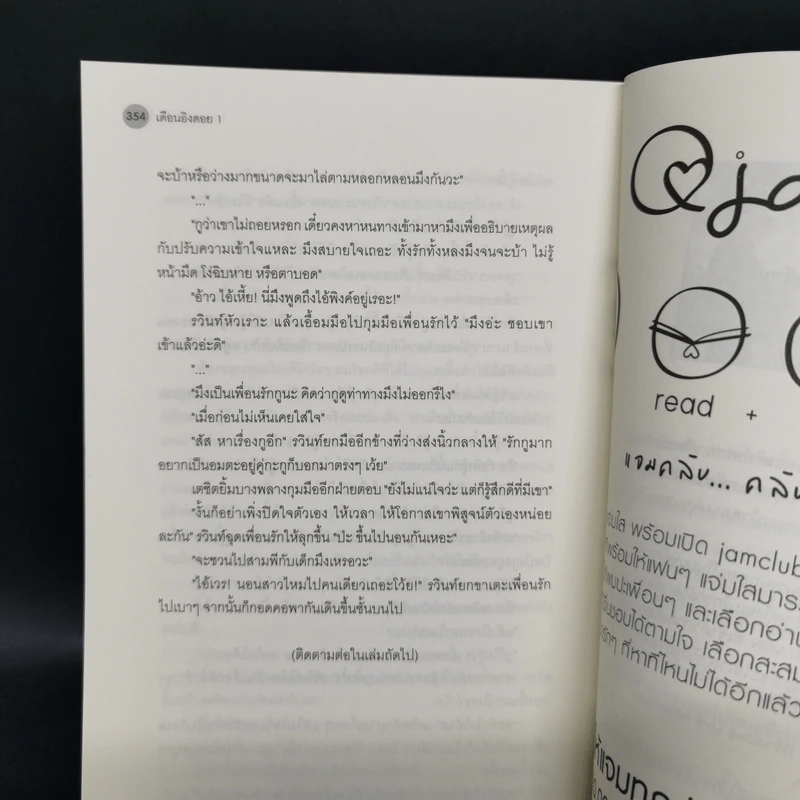 354 เดือนอิงดอย 1
จะบ้าหรือว่างมากขนาดจะมาไล่ตามหลอกหลอนมึงกันวะ"
"..."
"กูว่าเขาไม่ถอยหรอก เดี๋ยวคงหาหนทางเข้ามาหามึงเพื่ออธิบายเหตุผล
กับปรับความเข้าใจแหละ มึงสบายใจเถอะ ทั้งรักทั้งหลงมึงจนจะบ้า ไม่รู้
หน้ามืด โง่ฉิบหาย หรือตาบอด"
"อ้าว ไอ้เหี้ย! นี่มึงพูดถึงไอ้พิงค์อยู่เรอะ!"
รวินท์หัวเราะ แล้วเอื้อมมือไปกุมมือเพื่อนรักไว้ "มึงอ่ะ ชอบเขา
เข้าแล้วอ่ะดิ"
"..."
"มึงเป็นเพื่อนรักกูนะ คิดว่ากูดูท่าทางมึงไม่ออกรึไง"
"เมื่อก่อนไม่เห็นเคยใส่ใจ"
"สัส หาเรื่องกูอีก" รวินท์ยกมืออีกข้างที่ว่างส่งนิ้วกลางให้ "รักกูมาก
อยากเป็นอมตะอยู่คู่กะกูก็บอกมาตรงๆ เว้ย"
เตชิตยิ้มบางพลางกุมมืออีกฝ่ายตอบ "ยังไม่แน่ใจว่ะ แต่ก็รู้สึกดีที่มีเขา"
"งั้นก็อย่าเพิ่งปิดใจตัวเอง ให้เวลา ให้โอกาสเขาพิสูจน์ตัวเองหน่อย
ละกัน" รวินท์ฉุดเพื่อนรักให้ลุกขึ้น "ป่ะ ขึ้นไปนอนกันเหอะ"
"จะชวนไปสามพีกับเด็กมึงเหรอวะ"
"ไอ้เวร! นอนสาวไหมไปคนเดียวเถอะโว้ย!" รวินท์ยกขาเตะเพื่อนรัก
ไปเบาๆ จากนั้นก็กอดคอพากันเดินขึ้นชั้นบนไป
(ติดตามต่อในเล่มถัดไป)
read +
แจมคลับ... คลับ
พร้อมเปิด jamclub
พร้อมให้แฟนๆ แจ่มใสมาร
ปะเพื่อนๆ และเลือกอ่าน
ชอบได้ตามใจ เลือกสะสม
ที่หาที่ไหนไม่ได้อีกแล้ว